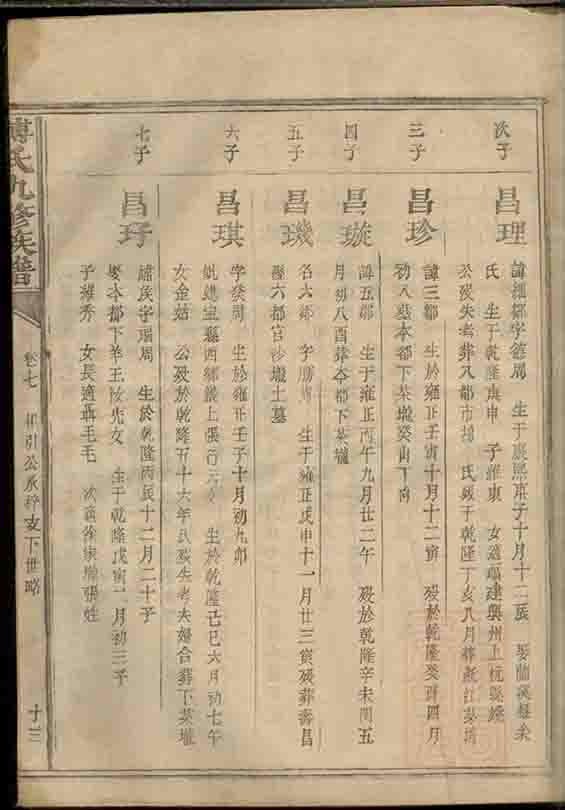 次子
昌理
諱 都字 周 生于康熙庚子十月十二辰 娶
氏 生于乾隆庚申 子 東 女適福建興州上杭縣
公歿失考葬八都市 氏歿于乾隆丁亥八月葬
三子
昌珍
諱三都 生於雍正壬寅十月十二寅 歿於乾隆癸酉四月
初八葬本都下茶壠癸山丁向
四子
昌璇
諱五都 生于雍正丙午九月廿二午 歿於乾隆辛未閏五
月初八酉葬本都下茶壠
五子
昌璣
名六都 字 周 生于雍正戊申十一月廿三寅歿葬壽昌
六都官沙壠土墓
六子
昌琪
字癸周 生於雍正壬子十月初九卯
進 縣四都嶺上張 女 生於乾隆己巳六月初七午
女金姑 公歿於乾隆五十六年氏歿失考夫婦合葬下茶壠
七子
昌玗
字瑞周 生於乾隆丙辰十二月二十子
娶本都下羊玉 光女 生于乾隆戊寅二月初三子
子維秀 女長適聶毛毛 次適徐 張姓
傅氏九修族譜
卷七 引公承梓支下世略
十三